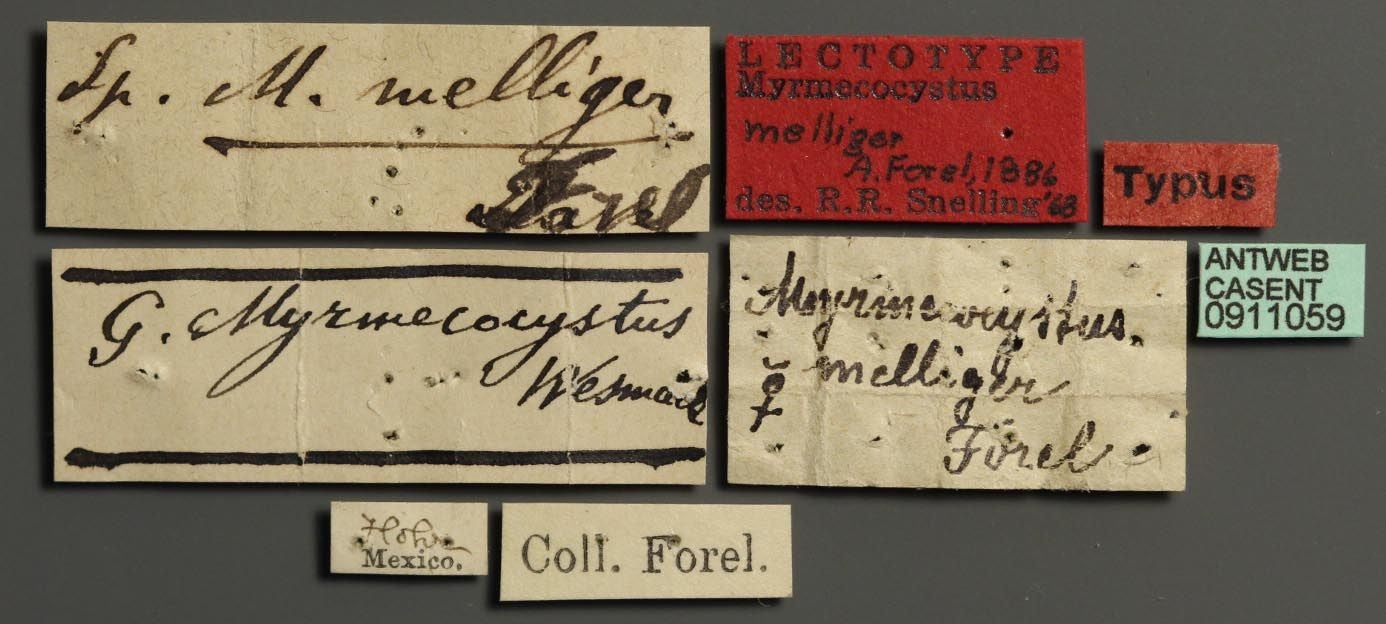 Sp. M. melliger
Forel
LECTOTYPE
Myrmecocystus
melliger
A. Forel, 1886
des. R.R. Snelling '68
Typus
G. Myrmecocystus
Wesmael
Myrmecocystus
☿ melliger
Forel
ANTWEB
CASENT
0911059
Mexico.
Coll. Forel.